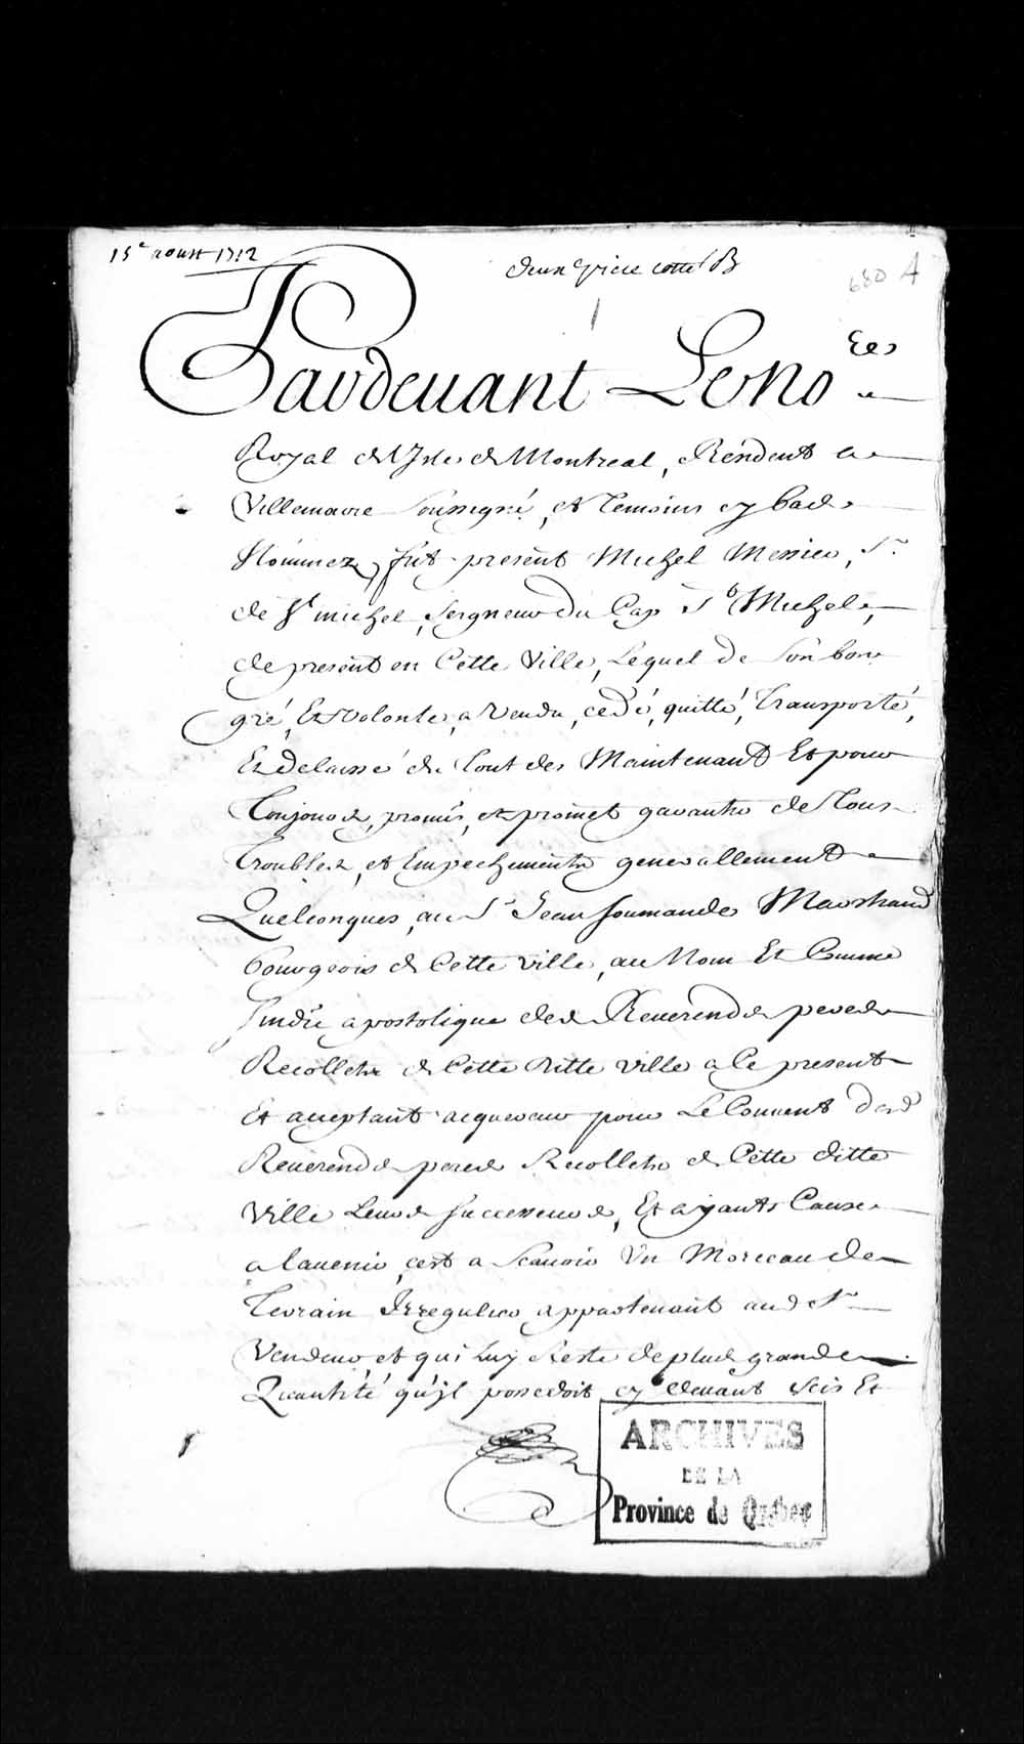 15e aoust 1712
deux piece cotte B
680 A
1
Pardevant Le No.re
Royal de l'Isle de Montreal, Residant a
Villemarie Soussigné, et Temoins cy bas
Nommez, fut present Michel Messier, Sr
de St michel, Seigneur du Cap St Michel,
de present en Cette Ville, Lequel de Son bon
gré, Et Volonté, a Vendu, cedé, quitté, Transporté,
Et delaissé de Tout des Maintenant Et pour
Toujours, promis, et promet garantir de Tous
Troubles, et Empechements generallement
Quelconques, au Sr Jean Soumande Marchand
bourgeois de Cette ville, au Nom Et Comme
Sindic apostolique des Reverends peres
Recollets de Cette ditte ville a Ce present
Et acceptant acquereur pour Le Couvent desd
Reverends peres Recollets de Cette ditte
Ville Leurs Successeurs, Et ayants Cause
a lavenir, cest a Scavoir Un Morceau de
Terrain Irregulier appartenant aud Sr
Vendeur, et qui Luy Reste de plus grande
Quantité qu'jl possedoit cy devant Scis Et
ARCHIVES
DE LA
Province de Québec